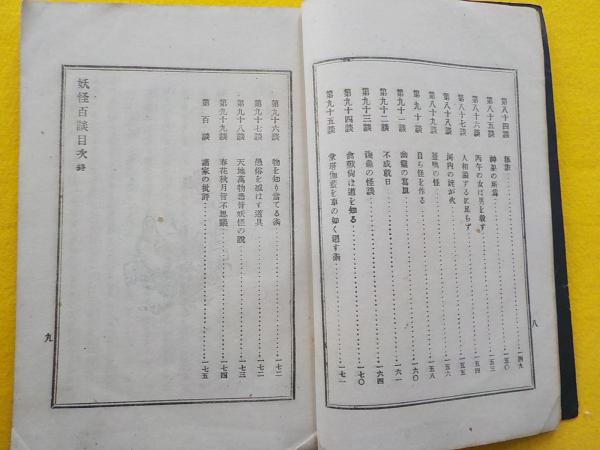 第八十四談
一四九
第八十五談 神巫の所爲 一五〇
第八十六談 丙午の女は男を殺す 一五三
第八十七談 人相論ずるに足らず 一五四
第八十八談 河内の姥が火 一五五
第八十九談 釜鳴の怪 一五六
第九十談 自ら怪を作る 一五八
第九十一談 幽靈の寫眞 一六〇
第九十二談 不成就日 一六一
第九十三談 の怪談 一六四
第九十四談 禽獸は道を知る 一七〇
第九十五談 堂塔伽藍を車の如く廻す術 一七一
八
第九十六談 物を知り當てる術 一七二
第九十七談 愚俗を惑はす道具 一七二
第九十八談 天地萬物悉皆妖怪の說 一七三
第九十九談 春花秋月皆不思議 一七四
第百談 諸家の批評 一七五
妖怪百談目次 終
九